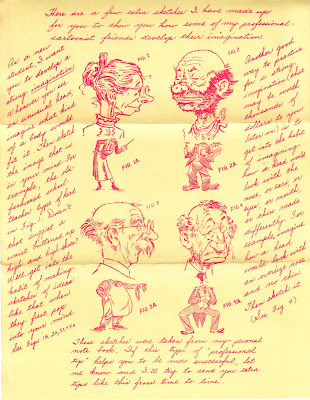 Here are a few extra sketches I have made up
for you to show you how some of my professional
cartoonist friends develop their imagination!
As a new
student, I want
you to develop a
strong imagination!
Whenever you see
an unusual head,
imagine what kind
of a body would
fit it. Then sketch
the image that is
in your mind. For
example, the old-
fashioned school
teacher type of head
in Fig. 1. Doesn't
that suggest a
waist buttoned up
high and high shoes?
We'll get into the
habit of making
sketches of ideas
like that when
they first pop
into your mind.
See Figs 1A, 2A, 3A, 4A
FIG. 1
FIG. 2
FIG. 1A
FIG. 2A
FIG. 3
FIG. 3A
FIG. 4A
Another good
way to practice
for a strong
imagination (that
may be worth
thousands of
dollars to you
later on) is to
get into the habit
of imagining
how a head would
look with the
nose, or ears, or
eyes, or mouth,
or chin made
differently. For
example, imagine
how a head
would look with
an enormous nose
and no chin.
Then sketch it.
(See Fig. 4)
These sketches were taken from my personal
note book. If this type of "professional
tip" helps you to be more successful, let
me know and I'll try to send you extra
tips like this from time to time.